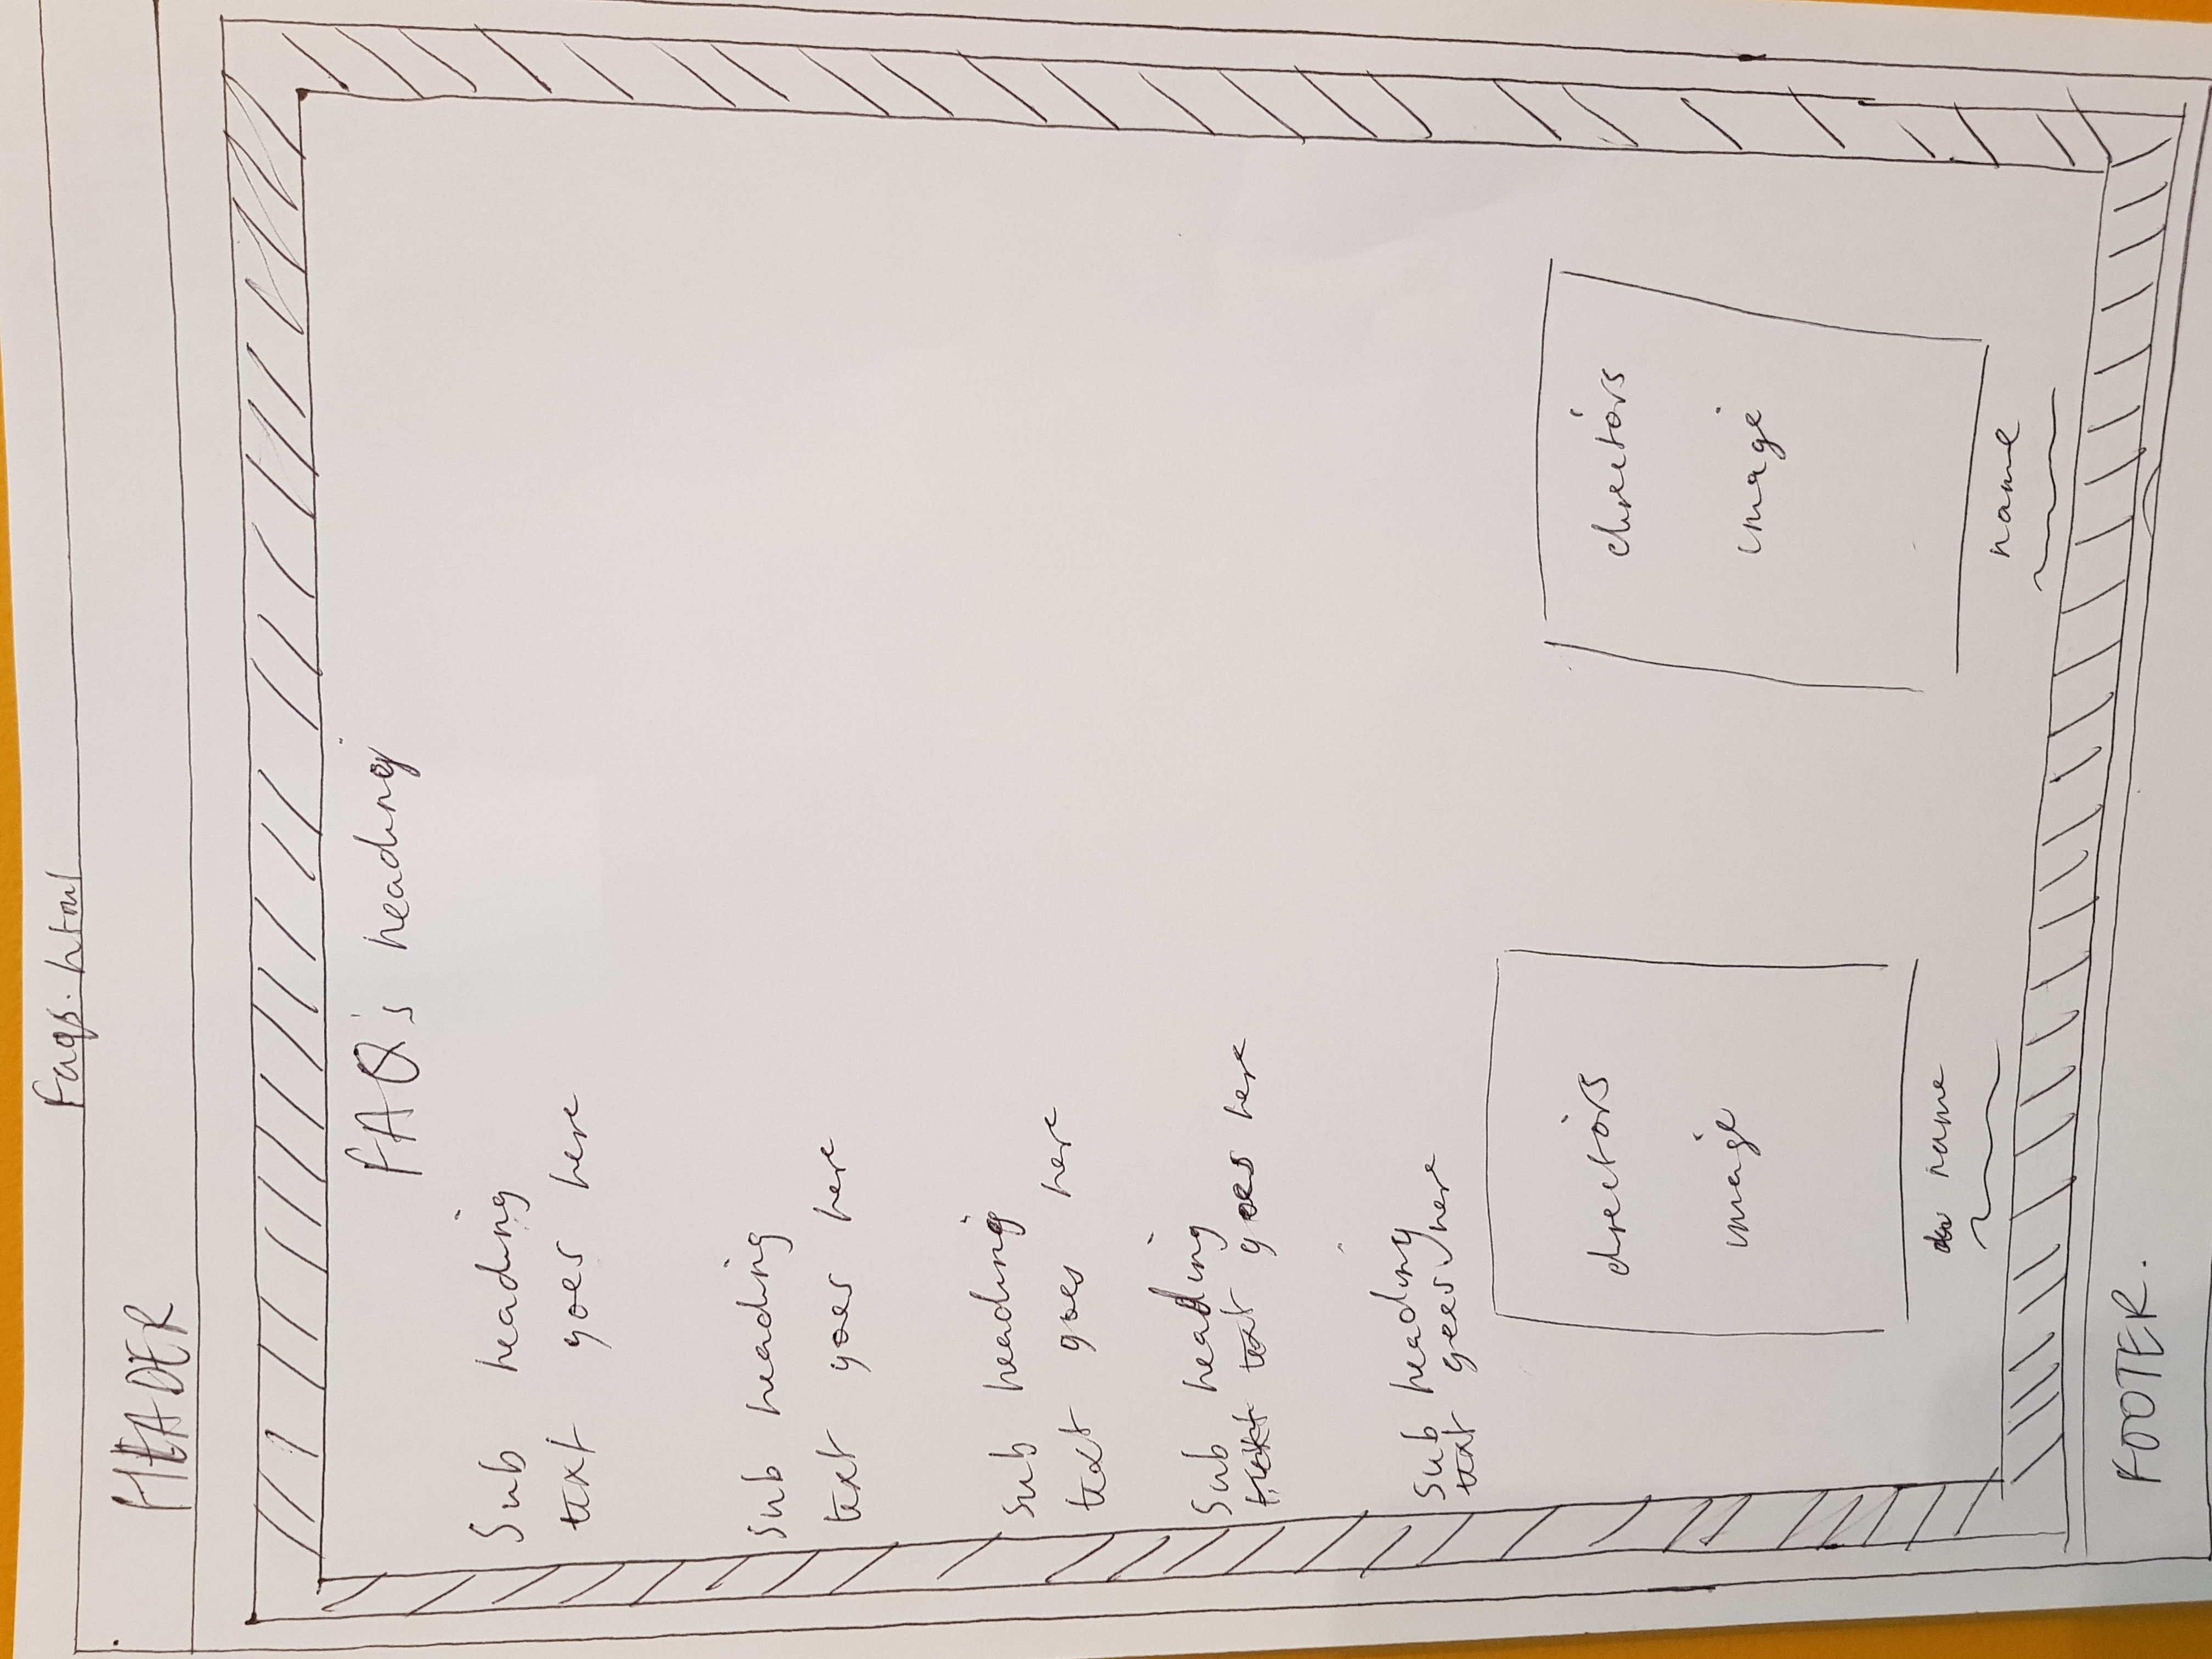 Faqs.html
HEADER
FAQ's heading
Sub heading
text goes here
Sub heading
text goes here
Sub heading
text goes here
Sub heading
text goes here
Sub heading
text goes here
directors
image
name
directors
image
name
FOOTER.